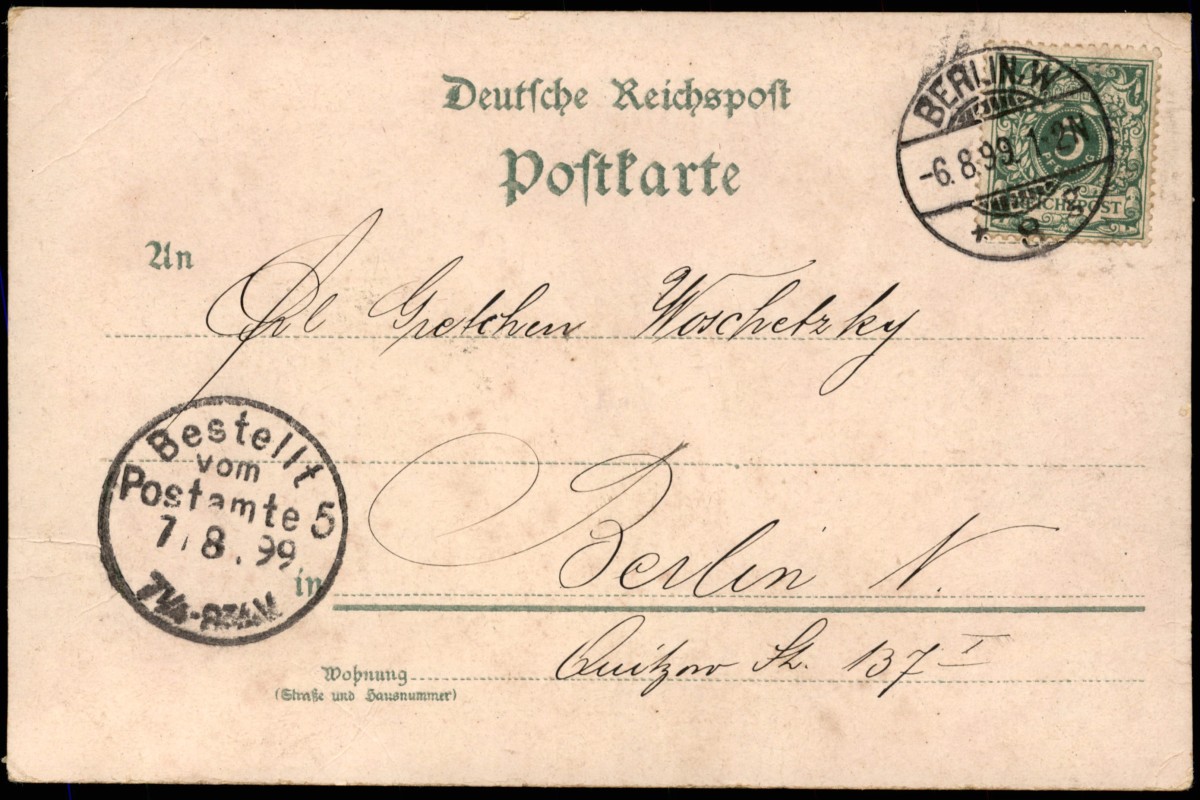 Deutsche Reichspost
Postkarte
BERLIN, W
-6.8.99. 1-2N
* 8
5
PFENNIG
REICHSPOST
An
Frl Gretchen Woschetzky
Bestellt
vom
Postamte 5
7.8.99
in Berlin N.
Quitzow St. 137 I
Wohnung
(Straße und Hausnummer)